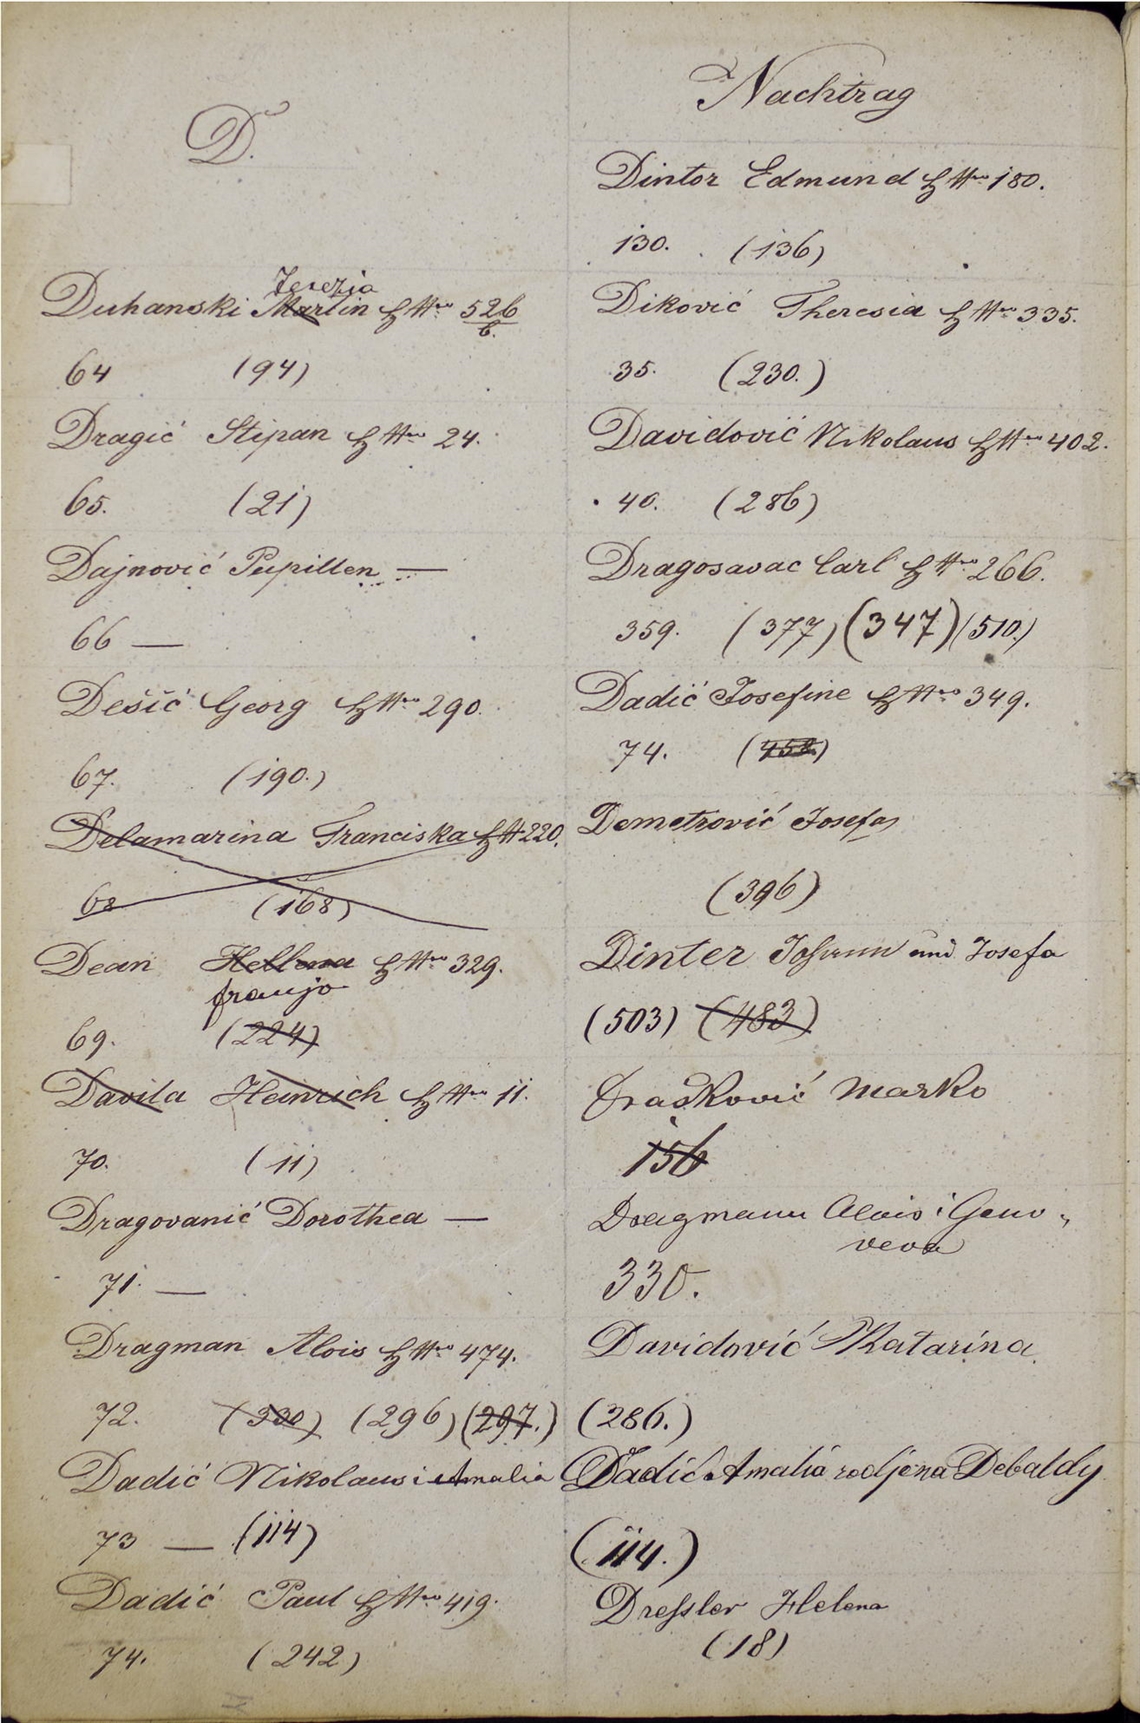 D.
Terezia
Duhanski Martin H Nro 526/6.
64 (94)
Dragić Stipan H Nro 24.
65. (21)
Dajnović Pupillen —
66 —
Dešić Georg H Nro 290.
67. (190.)
Delamarina Franciska H N 220.
68 (168)
Dean Hellena H Nro 329.
franjo
69. (224)
Davila Heinrich H Nro 11.
70. (11)
Dragovanić Dorothea —
71. —
Dragman Alois H Nro 474.
72. (330) (296) (297.)
Dadić Nikolaus i Amalia
73 — (114)
Dadić Paul H Nro 419.
74. (242)
Nachtrag
Dintor Edmund H Nro 180.
130. (136)
Diković Theresia H Nro 335.
35. (230.)
Davidović Nikolaus H Nro 402.
40. (286)
Dragosavac Carl H Nro 266.
359. (377) (347) (510.)
Dadić Josefine H Nro 349.
74. (458.)
Demetrović Josefa
(396)
Dinter Johann und Josefa
(503) (483)
Drašković Marko
156
Dragmann Alois i Geno-
veva
330.
Davidović Katarina
(286.)
Dadić Amalia rodjena Debaldy
(114.)
Dressler Helena
(18)